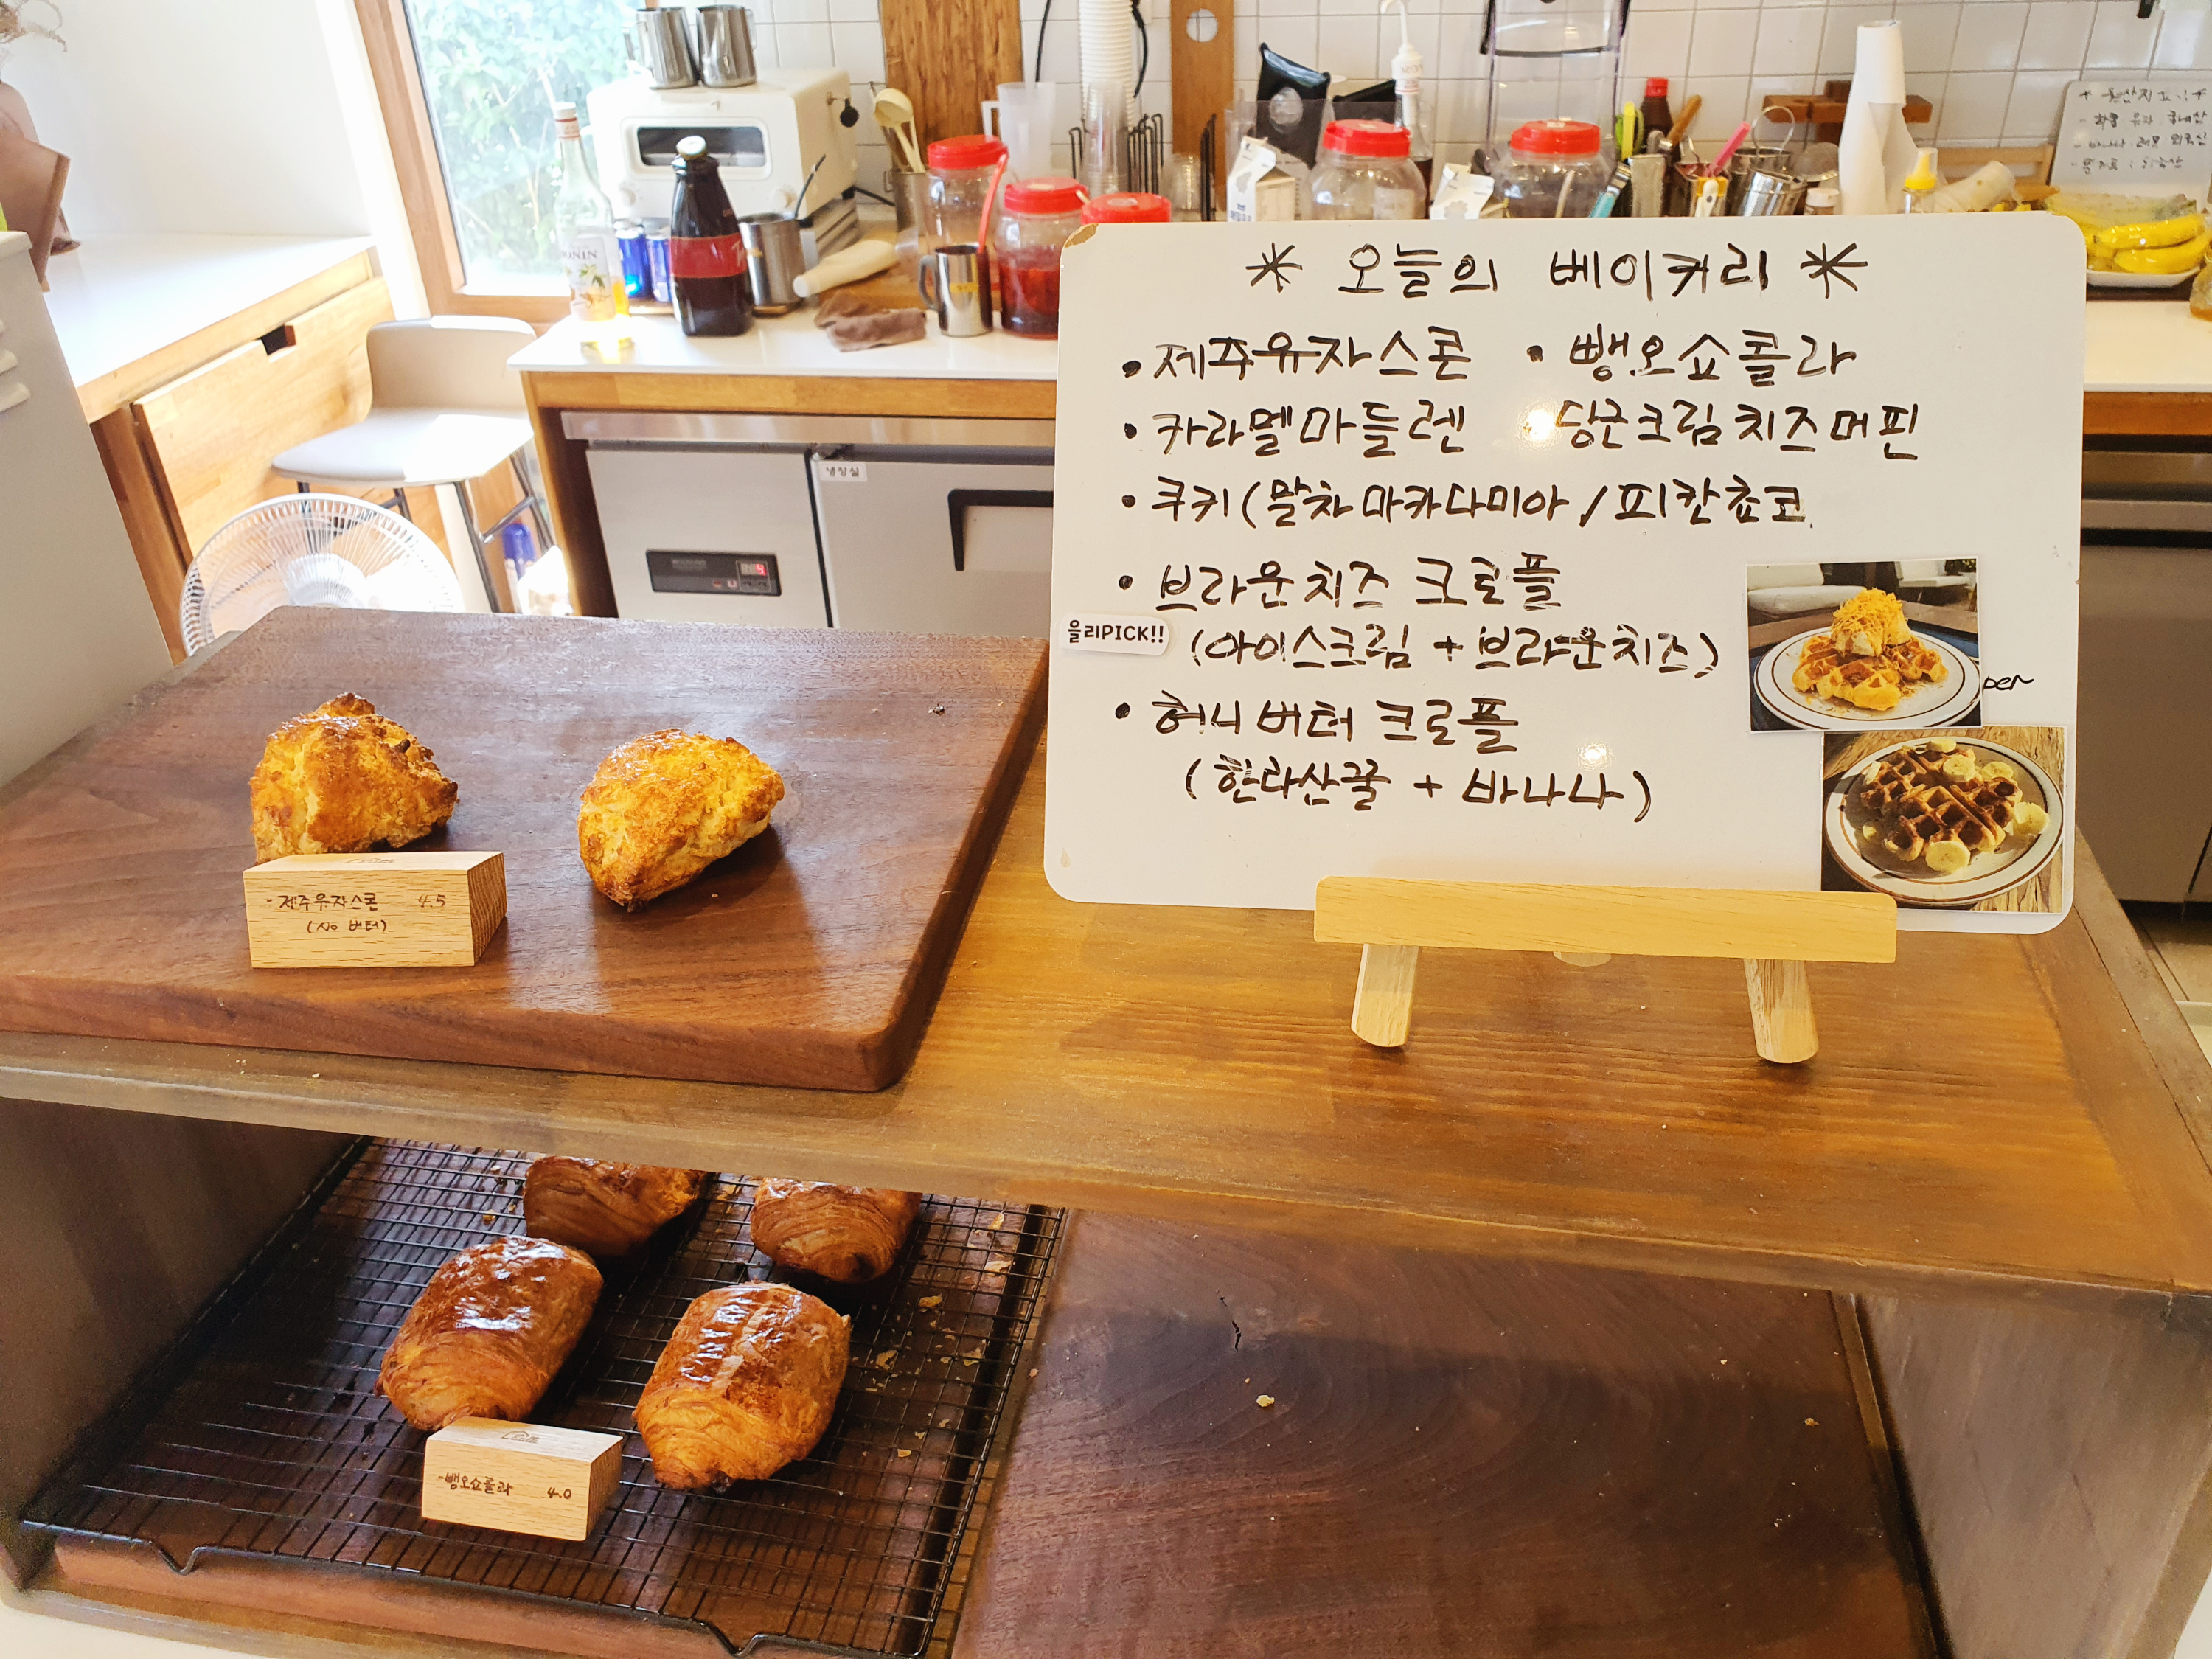 * 오늘의 베이커리 *
• 제주유자스콘 • 뺑오쇼콜라
• 카라멜마들렌 • 당근크림치즈머핀
• 쿠키(말차마카다미아/피칸쵸코
• 브라운치즈 크로플
을리PICK!!
(아이스크림 + 브라운치즈)
• 허니버터 크로플
(한라산꿀 + 바나나)
- 제주유자스콘 4.5
(No 버터)
- 뺑오쇼콜라 4.0
냉장실